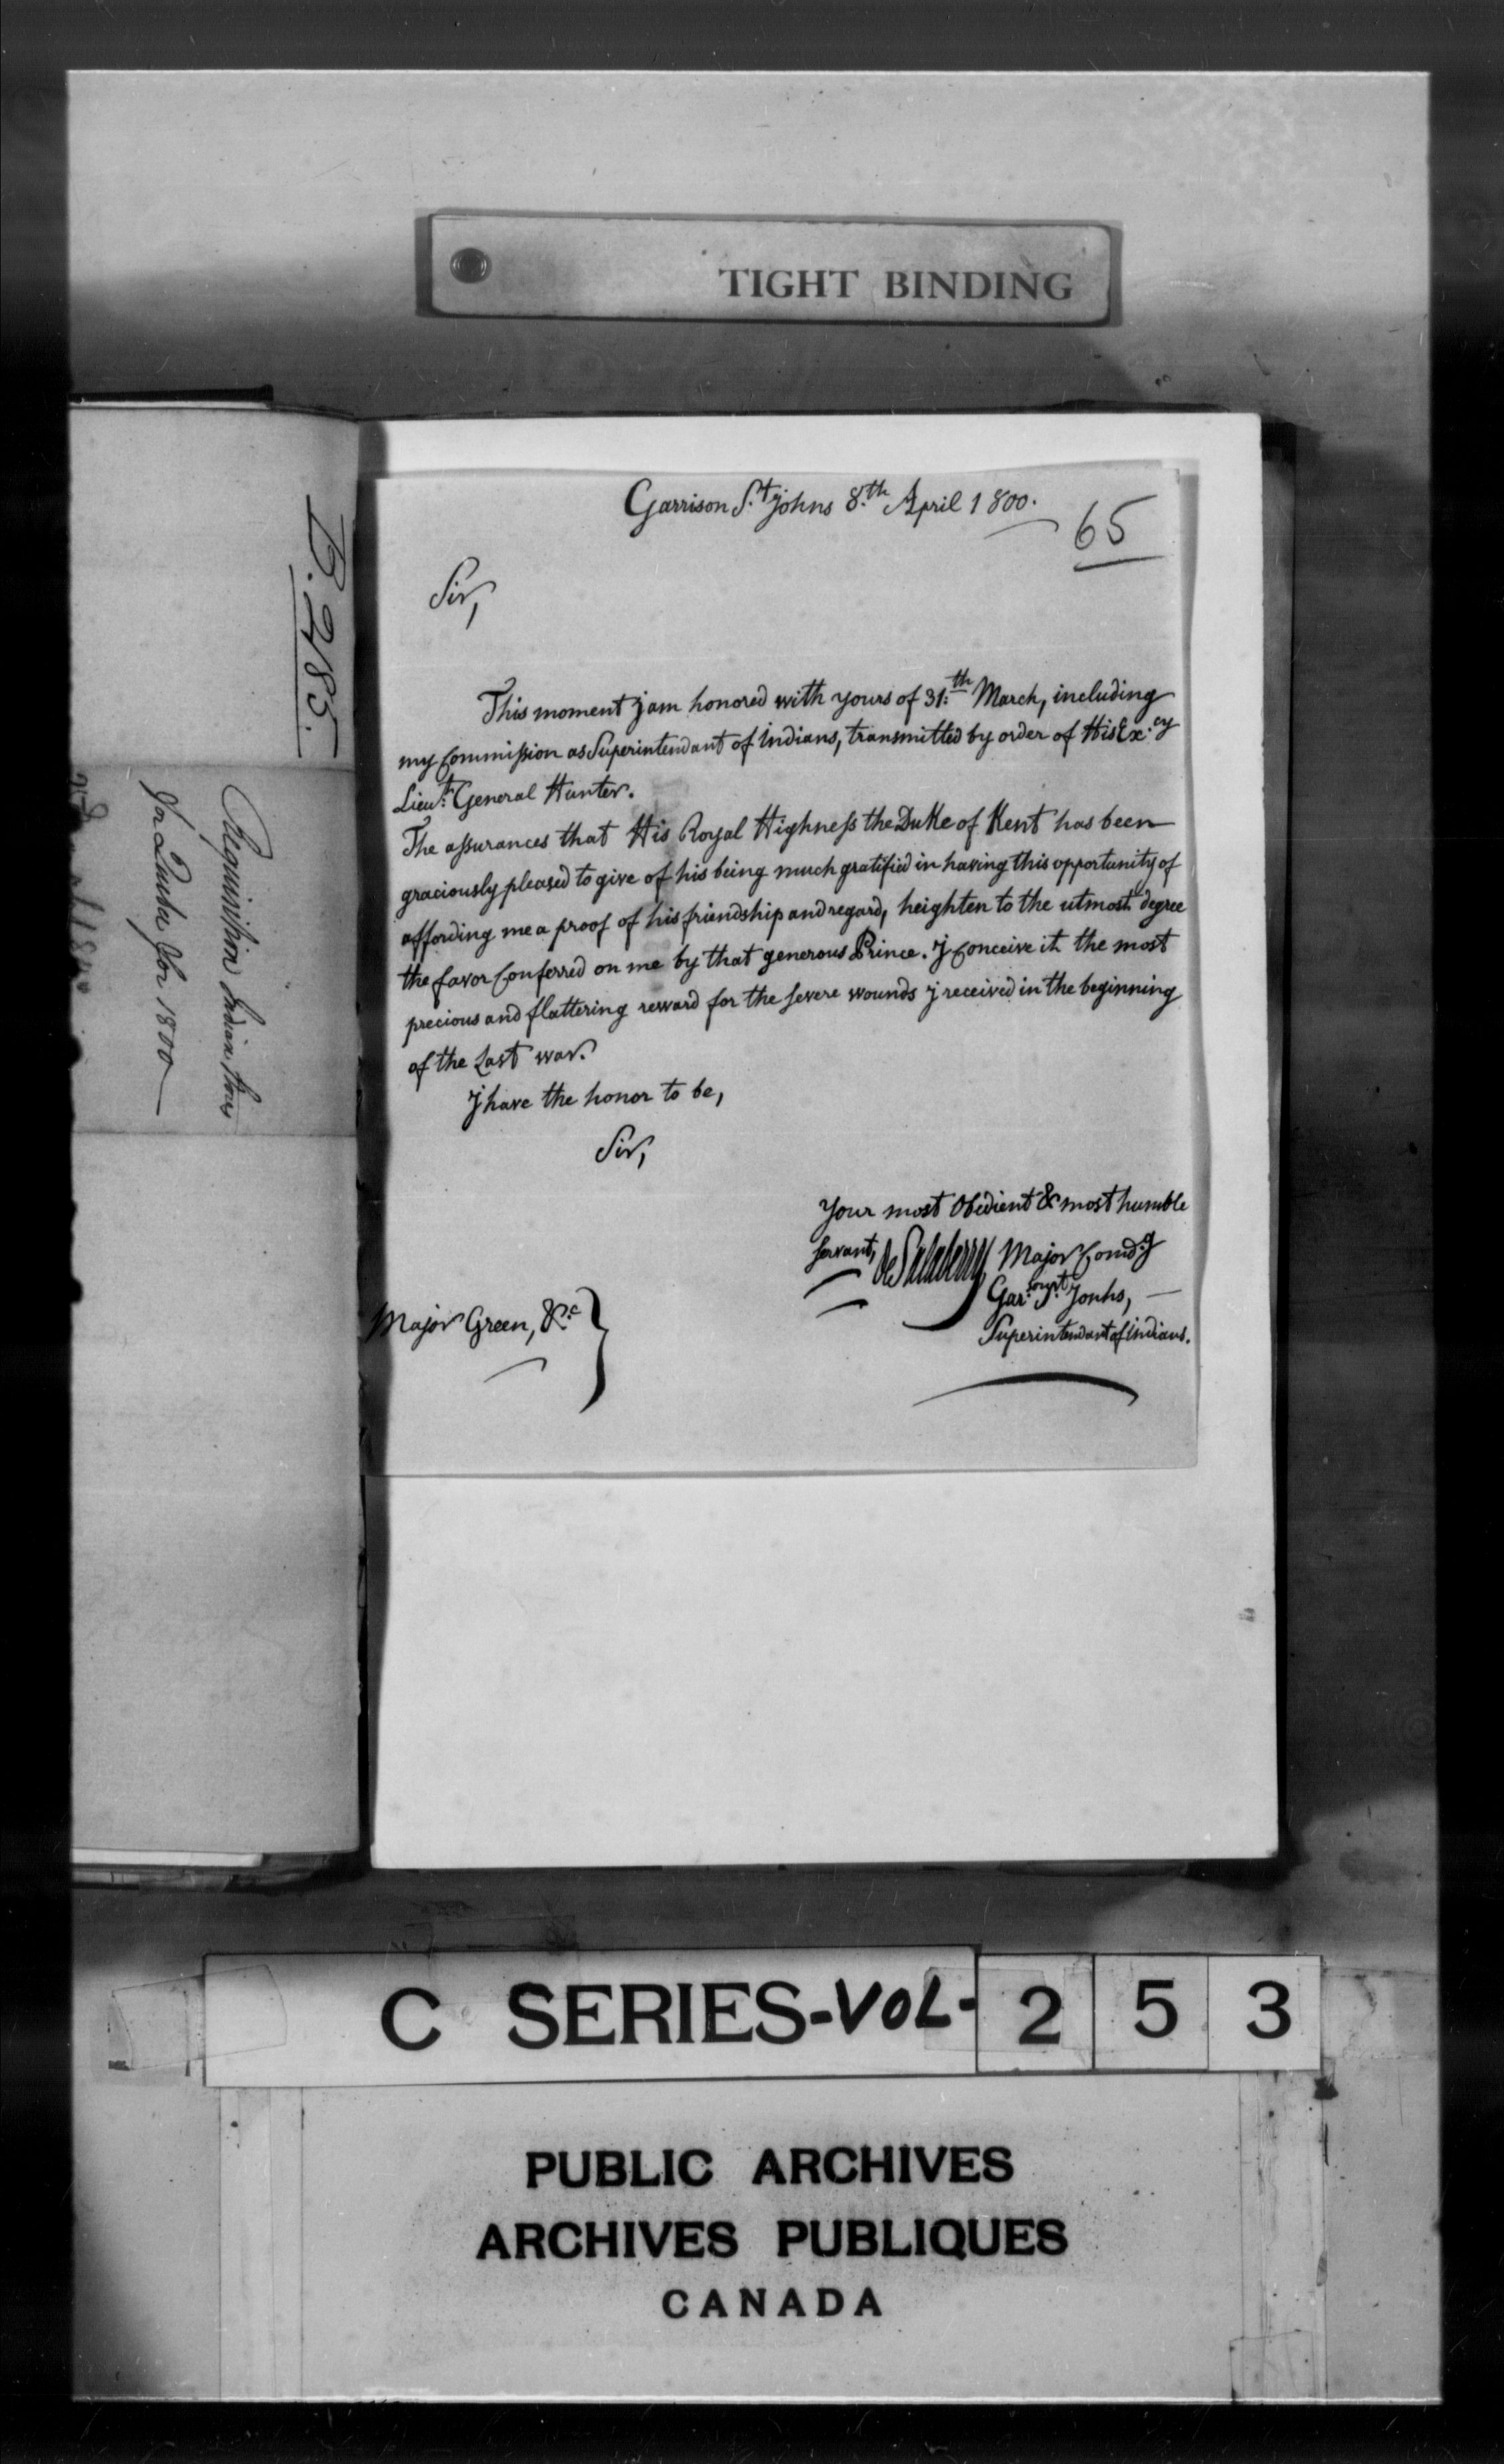 TIGHT BINDING
B. 285.
Requisition Indian Stores
for Quebec for 1800
Garrison S.t Johns 8.th April 1800.
65
Sir,
This moment j am honored with yours of 31.th March, including
my Commission as Superintendant of Indians, transmitted by order of His Ex.cy
Lieu.t General Hunter.
The assurances that His Royal Highness the Duke of Kent has been
graciously pleased to give of his being much gratified in having this opportunity of
affording me a proof of his friendship and regard, heighten to the utmost degree
the favor Conferred on me by that generous Prince. j Conceive it the most
precious and flattering reward for the severe wounds j received in the beginning
of the Last war.
j have the honor to be,
Sir,
Your most Obedient & most humble
servant,
de Salaberry Major Comd.g
Gar. St. Jonhs,
Superintendant of Indians.
Major Green, &c.
C SERIES-VOL- 2 5 3
PUBLIC ARCHIVES
ARCHIVES PUBLIQUES
CANADA